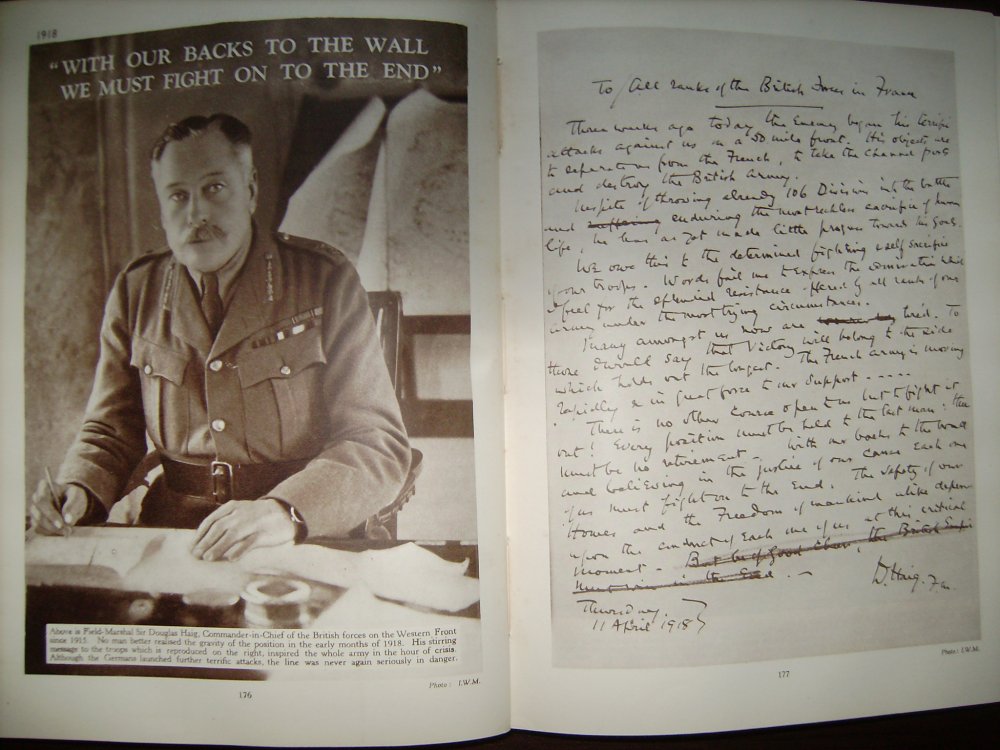 1918
"WITH OUR BACKS TO THE WALL
WE MUST FIGHT ON TO THE END"
Above is Field-Marshal Sir Douglas Haig, Commander-in-Chief of the British forces on the Western Front
since 1915. No man better realised the gravity of the position in the early months of 1918. His stirring
message to the troops which is reproduced on the right, inspired the whole army in the hour of crisis.
Although the Germans launched further terrific attacks, the line was never again seriously in danger.
Photo: I.W.M.
176
To All ranks of the British Forces in France
Three weeks ago today the Enemy began his terrific
attacks against us on a 50 mile front. His objects are
to separate us from the French, to take the Channel ports
and destroy the British Army.
In spite of throwing already 106 Divisions into the battle
and suffering enduring the most reckless sacrifice of human
life, he has as yet made little progress towards his goals.
We owe this to the determined fighting & self sacrifice
of our troops. Words fail me to express the admiration which
I feel for the splendid resistance offered by all ranks of our
Army under the most trying circumstances.
Many amongst us now are tired. To
those I would say that Victory will belong to the side
which holds out the longest. The French Army is moving
rapidly & in great force to our support. - - - - -
There is no other course open to us but to fight it
out! Every position must be held to the last man: there
must be no retirement. With our backs to the wall
and believing in the justice of our cause each one
of us must fight on to the end. The safety of our
Homes and the Freedom of mankind alike depend
upon the conduct of each one of us at this critical
moment - But be of good cheer, the British Empire
must win in the end. -
D. Haig. F.M.
Thursday
11 April 1918
Photo: I.W.M.
177